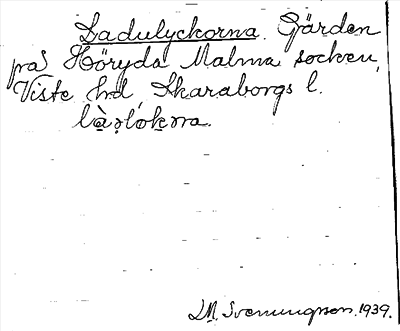 Ladulyckorna. Gärden
på Höryda Malma socken,
Viste hd, Skaraborgs l.
L.M. Svenungsson. 1939.